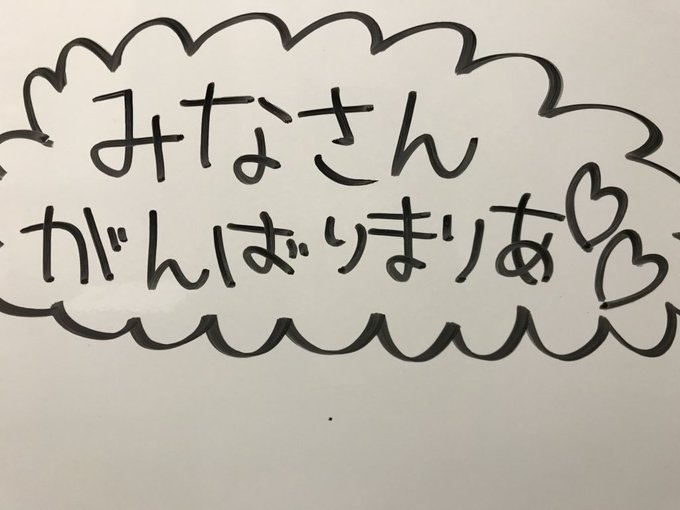 みなさん
がんばりまりあ♡♡